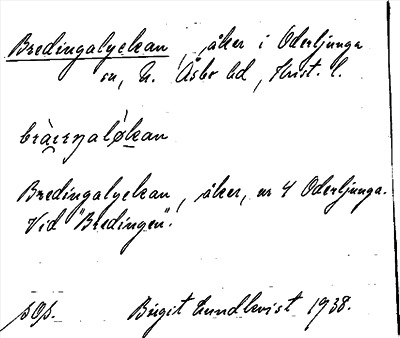 Bredingalyckan, åker i Oderljunga
sn, N. Åsbo hd, Krist. l.
Bredingalyckan, åker, nr 4 Oderljunga.
Vid "Bredingen".
Birgit Lundkvist 1938.